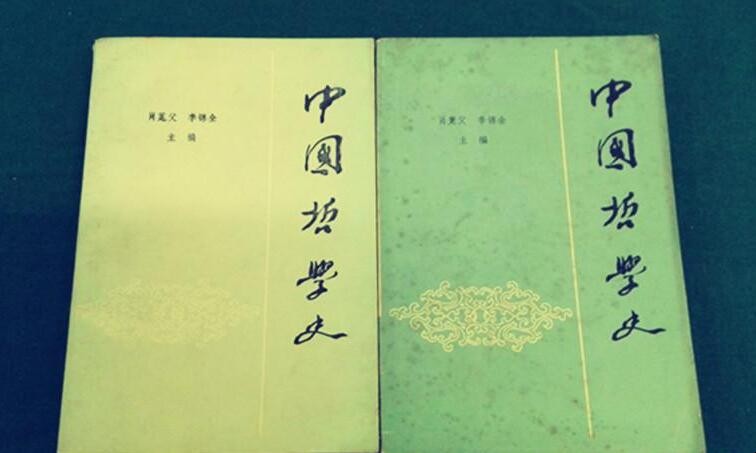 中國哲學史
肖萐父 李锦全
主编
中國哲學史
肖萐父 李锦全
主编